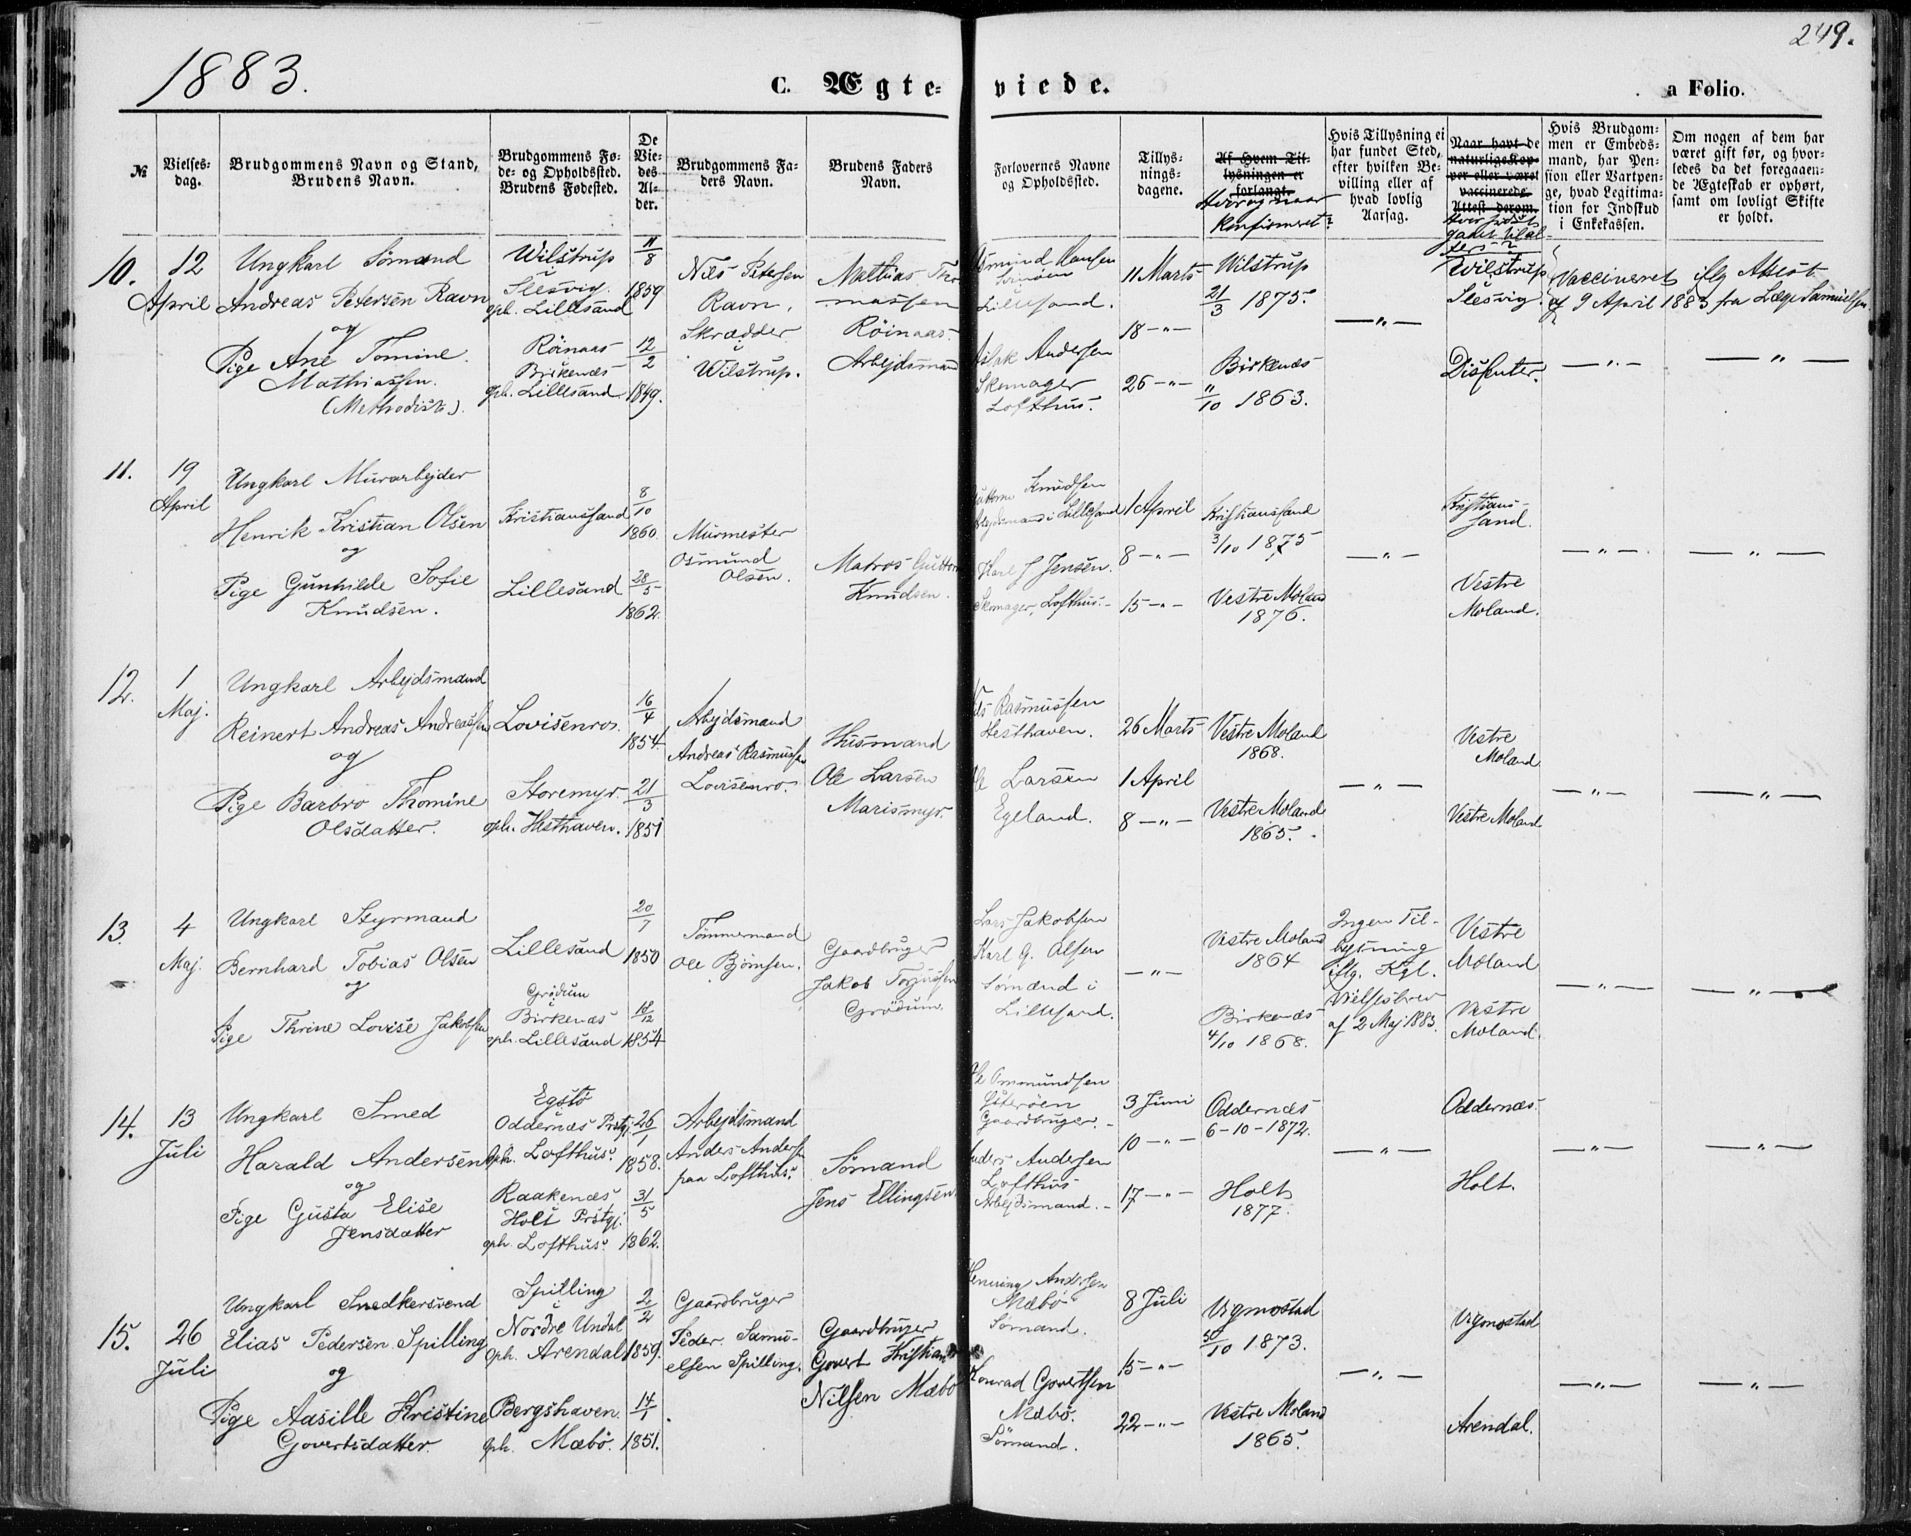 1883.
249.
C. Ægte-
viede.
a Folio.
№
Vielses-
dag.
Brudgommens Navn og Stand,
Brudens Navn.
Brudgommens Fø-
de- og Opholdssted.
Brudens Fødested.
De
Vie-
des
Al-
der.
Brudgommens Fa-
ders Navn.
Brudens Faders
Navn.
Forlovernes Navne
og Opholdssted.
Tillys-
nings-
dagene.
Af Hvem Til-
lysningen er
forlangt.
Hvor og naar
Konfirmeret?
Hvis Tillysning ei
har fundet Sted,
efter hvilken Be-
villing eller af
hvad lovlig
Aarsag.
Naar havt de
naturlige Kop-
per eller været
vaccinerede.
Attest derom.
Hvis Brudgom-
men er Embeds-
mand, har Pen-
sion eller Vartpen-
ge, hvad Legitima-
tion for Indskud
i Enkekassen.
Om nogen af dem har
været gift før, og hvor-
ledes da det foregaaen-
de Ægteskab er ophørt,
samt om lovligt Skifte
er holdt.
10.
12
April
Ungkarl Sømand
Andreas Petersen Ravn
og
Pige Ane Tomine
Mathiassen.
(Methodist).
Wilstrup
i
Slesvig.
oph. Lillesand
Röinaas
Birkenæs
oph. Lillesand.
11/8
1859
12/2
1849.
Nils Petersen
Ravn,
Skrædder
i
Wilstrup.
Mathias Tho-
massen
Röinaas
Arbejdsmand
Asmund Hansen
Lillesand.
Aslak Andersen
Skomager
Lofthus.
11 Marts
18 — " —
26 — " —
Wilstrup
21/3 1875.
Birkenæs
"/10 1863.
— " —
Wilstrup
Slesvig.
Disfenter.
Vaccineret iflg Attest
af 9 April 1883 fra Læge Samuelsen
— " —
— " —
11.
19
April
Ungkarl Murarbejder
Henrik Kristian Olsen
og
Pige Gunhilde Sofie
Knudsen.
Kristianssand
Lillesand
8/10
1860.
28/5
1862.
Murmester
Osmund
Olsen.
Matros Guttorm
Knudsen.
Guttorm Knudsen
Arbejdsmand i Lillesand
Karl J Jensen.
Skomager, Lofthus.
1 April
8 — " —
15 — " —
Kristianssand
3/10 1875
Vestre Moland
1876.
— " —
Kristians-
sand.
Vestre
Moland.
— " —
— " —
12.
1
Maj.
Ungkarl Arbejdsmand
Reinert Andreas Andreassen
og
Pige Barbro Thomine
Olsdatter.
Lovisenro.
Storemyr.
oph. Hesthaven.
16/4
1854.
21/3
1851
Arbejdsmand
Andreas Rasmussen
Lovisenro.
Husmand
Ole Larsen
Marismyr.
Nils Rasmussen
Hesthaven.
Ole Larsen
Egeland.
26 Marts
1 April
8 — " —
Vestre Moland
1868.
Vestre Moland
1865.
— " —
Vestre
Moland
Vestre Moland
— " —
— " —
13.
4
Maj.
Ungkarl Styrmand
Bernhard Tobias Olsen
og
Pige Thrine Lovise Jakobsen
Lillesand
Grödum
Birkenæs
oph. Lillesand
20/7
1850
18/12
1854
Tømmermand
Ole Bjørnsen.
Gaardbruger
Jakob Torjussen
Grödum.
Lars Jakobsen
Karl G. Olsen
Sømænd i
Lillesand.
— " —
Vestre Moland
1864
Birkenæs
4/10 1868.
Ingen Til-
lysning
iflg. Kgl.
Vielsesbrev
af 2 Maj 1883.
Vestre
Moland
Vestre
Moland.
— " —
— " —
14.
13
Juli
Ungkarl Smed
Harald Andersen
og
Pige Gusta Elise
Jensdatter
Egstø
Oddernæs Prstgj.
Oph. Lofthus.
Raakenæs
Holt Prstgj.
oph. Lofthus.
26/1
1858.
31/5
1862.
Arbejdsmand
Anders Andersen
paa Lofthus.
Sømand
Jens Ellingsen
Ole Ommundsen
Gaardbruger.
Anders Andersen
Lofthus
Arbejdsmand.
3 Juni
10 — " —
17 — " —
Oddernæs
6-10-1872.
Holt
1877.
— " —
Oddernæs.
Holt.
— " —
— " —
15.
26
Juli
Ungkarl Snedkersvend
Elias Pedersen Spilling
og
Pige Aasille Kristine
Govertsdatter.
Spilling
i
Nordre Undal
Oph. Arendal
Bergshaven.
oph. Mæbø.
2/2
1859.
14/1
1851.
Gaardbruger
Peder Samu-
elsen Spilling.
Gaardbruger
Govert Kristian
Nilsen Mæbø
Henning Andersen
Mæbø
Sømand.
Konrad Govertsen
Mæbø.
Sømand.
8 Juli
15 — " —
22 — " —
Vigmostad
50/10 1873.
Vestre Moland
1865.
— " —
Vigmostad
Arendal.
— " —
— " —